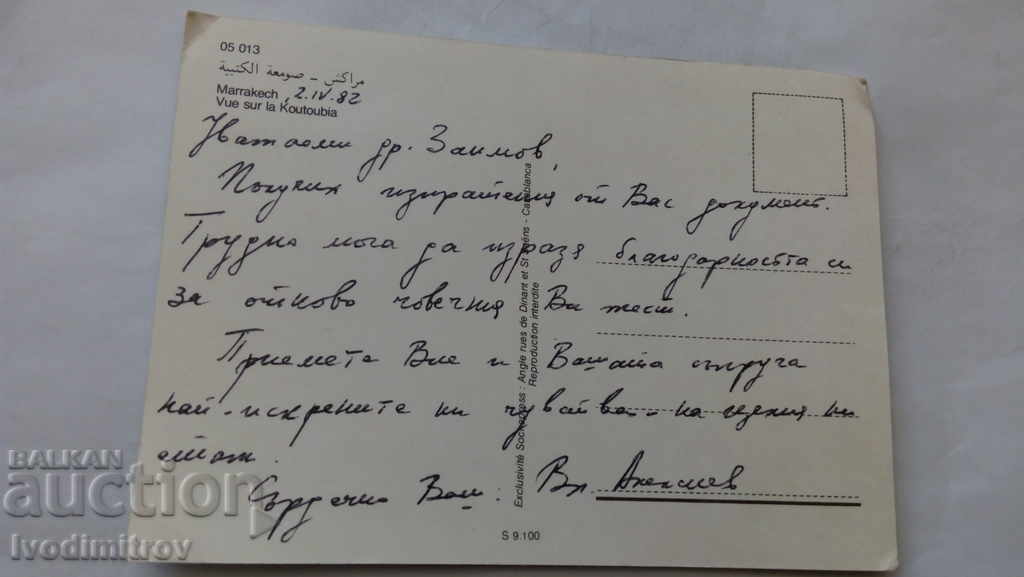 05 013
مراكش - صومعة الكتبية
Marrakech 2.IV.82
Vue sur la Koutoubia
Уважаеми др. Заимов,
Получих изпратения от Вас документ.
Трудно мога да изразя благодарността си
за отново човечния Ви жест.
Приемете Вие и Вашата съпруга
най-искрените ни чувства на целия ни
етаж.
Сърдечно Ваш: Вл
Exclusivité Sochepress : Angle rues de Dinant et St Saëns - Casablanca
Reproduction interdite
S 9.100
BALKAN
auction
Ivodimitrov